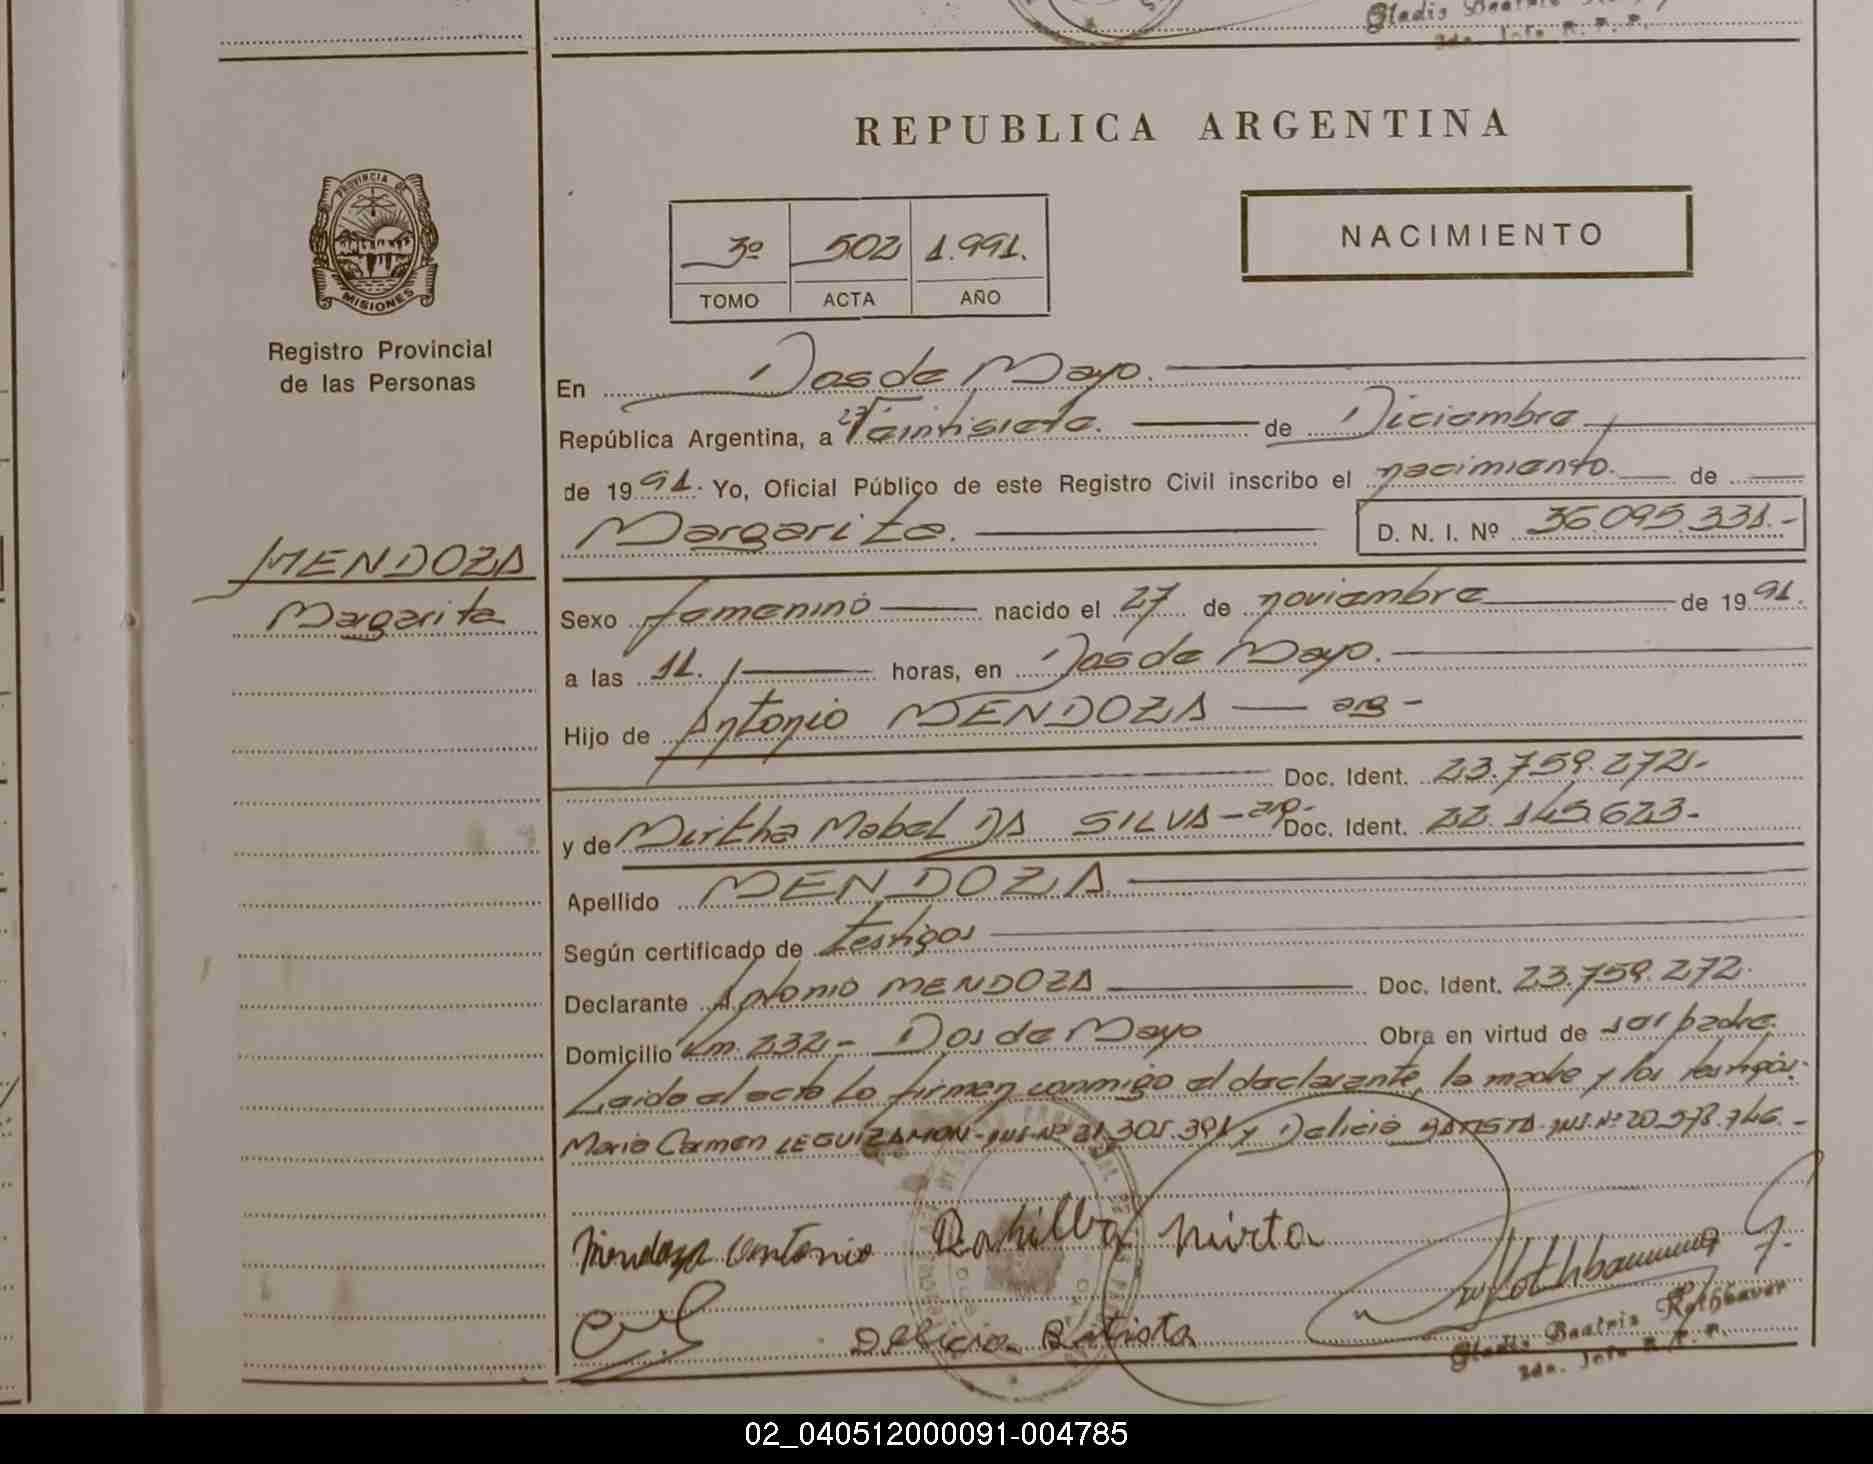 Gladis Beatriz
2da. Jefe R. P. P.
REPUBLICA ARGENTINA
PROVINCIA DE
MISIONES
3º 502 1.991.
TOMO ACTA AÑO
NACIMIENTO
Registro Provincial
de las Personas
En Dos de Mayo.
República Argentina, a 27 Veintisiete. de Diciembre
de 1991. Yo, Oficial Público de este Registro Civil inscribo el nacimiento. de
Margarita. D. N. I. Nº 36.095.331.-
MENDOZA
Margarita
Sexo femenino nacido el 27 de noviembre de 1991.
a las 11. horas, en Dos de Mayo.
Hijo de Antonio MENDOZA arg -
Doc. Ident. 23.759.272.-
y de Mirtha Mabel DA SILVA - arg.- Doc. Ident. 22.145.623.-
Apellido MENDOZA.
Según certificado de testigos
Declarante Antonio MENDOZA Doc. Ident. 23.759.272.
Domicilio Km. 232.- Dos de Mayo Obra en virtud de ser padre.
Leido el acto lo firmen conmigo el declarante, la madre y los testigos:
Maria Carmen LEGUIZAMON - DNI. Nº 21.305.391 y Delicia BATISTA. DNI. Nº 20.578.746.-
Mendoza Antonio Mirta
Delicia Batista
Gladis Beatriz Rothbauer
2da. Jefe R. P. P.
02_040512000091-004785